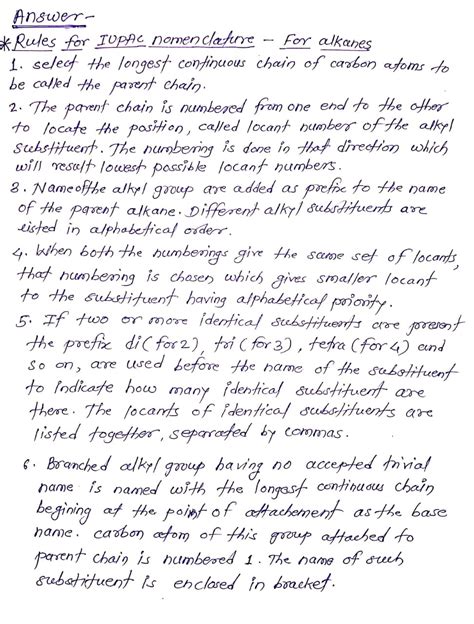 Answer-
* Rules for IUPAC nomenclature - For alkanes
1. select the longest continuous chain of carbon atoms to
be called the parent chain.
2. The parent chain is numbered from one end to the other
to locate the position, called locant number of the alkyl
substituent. The numbering is done in that direction which
will result lowest possible locant numbers.
3. Name of the alkyl group are added as prefix to the name
of the parent alkane. Different alkyl substituents are
listed in alphabetical order.
4. When both the numberings give the same set of locants,
that numbering is chosen which gives smaller locant
to the substituent having alphabetical priority.
5. If two or more identical substituents are present
the prefix di (for 2), tri (for 3), tetra (for 4) and
so on, are used before the name of the substituent
to indicate how many identical substituent are
there. The locants of identical substituents are
listed together, separated by commas.
6. Branched alkyl group having no accepted trivial
name is named with the longest continuous chain
begining at the point of attachement as the base
name. carbon atom of this group attached to
parent chain is numbered 1. The name of such
substituent is enclosed in bracket.